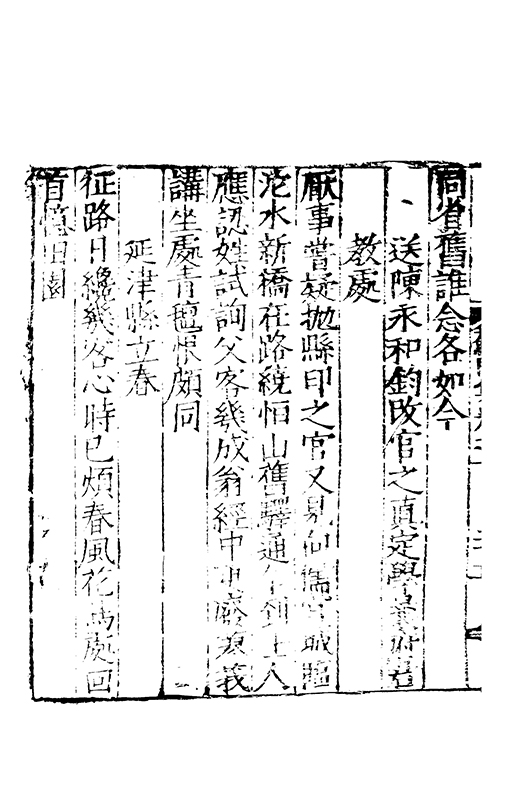 同省舊誰念各如今
送陳永和鈞改官之真定學
教處
厭事嘗疑抛縣印之官又見向儒
沱水新橋在路繞恒山舊驛通
應認姓試詢父客幾成翁經中廢義
講坐處青氊恨頗同
延津縣立春
征路日纔幾客心時已煩春風花處回
首憶田園